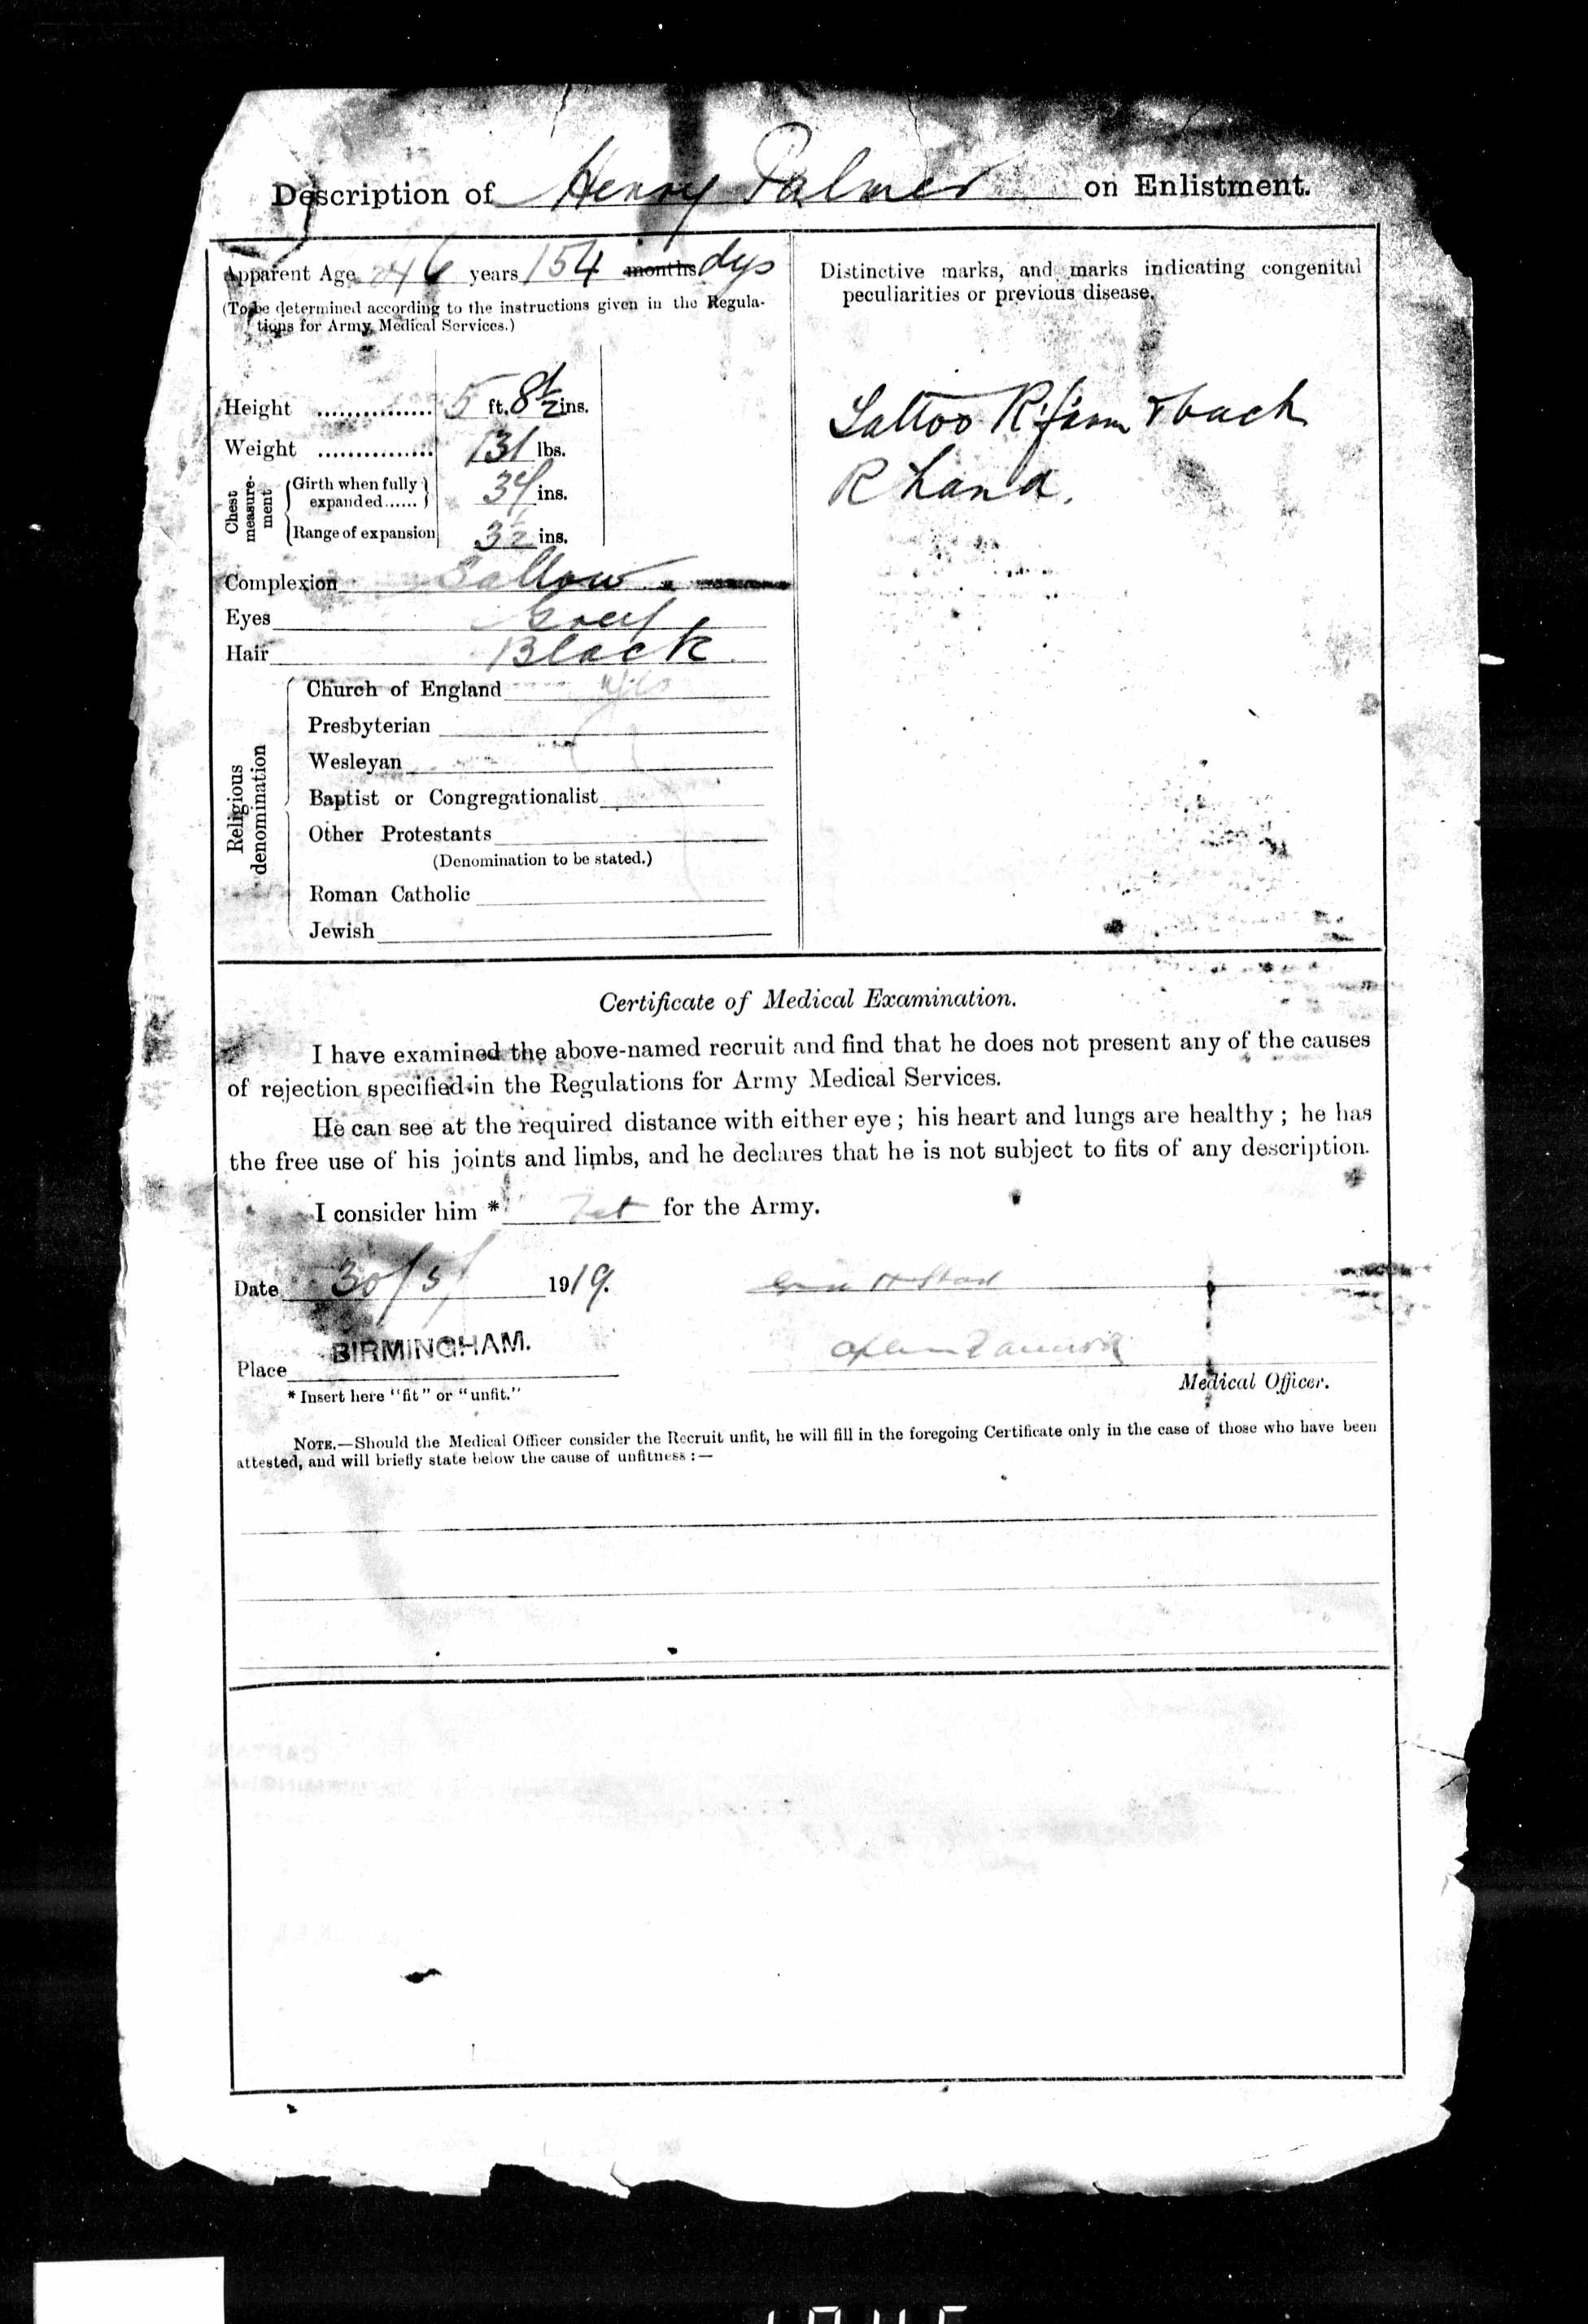 Description of Henry Palmer on Enlistment.
Apparent Age 46 years 154 months dys
(To be determined according to the instructions given in the Regula-
tions for Army Medical Services.)
Height ................ 5 ft. 8½ ins.
Weight ................ 131 lbs.
Chest measure-ment
Girth when fully expanded...... 34 ins.
Range of expansion 3½ ins.
Complexion Sallow
Eyes Grey
Hair Black
Religious denomination
Church of England
Presbyterian
Wesleyan
Baptist or Congregationalist
Other Protestants
(Denomination to be stated.)
Roman Catholic
Jewish
Distinctive marks, and marks indicating congenital
peculiarities or previous disease.
Tattoo R. farm & back
R hand.
Certificate of Medical Examination.
I have examined the above-named recruit and find that he does not present any of the causes
of rejection specified in the Regulations for Army Medical Services.
He can see at the required distance with either eye ; his heart and lungs are healthy ; he has
the free use of his joints and limbs, and he declares that he is not subject to fits of any description.
I consider him * Fit for the Army.
Date 30/5/ 1919.
Place BIRMINGHAM.
Medical Officer.
* Insert here "fit" or "unfit."
NOTE.—Should the Medical Officer consider the Recruit unfit, he will fill in the foregoing Certificate only in the case of those who have been
attested, and will briefly state below the cause of unfitness :—